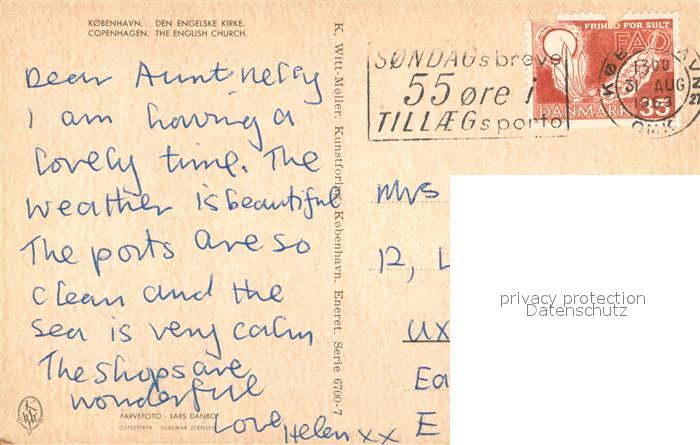 KØBENHAVN. DEN ENGELSKE KIRKE.
COPENHAGEN. THE ENGLISH CHURCH.
Dear Aunt Nelly
I am having a
lovely time. The
weather is beautiful
The ports are so
clean and the
sea is very calm
The shops are
wonderful
Love Helen xx
FARVEFOTO - LARS DANBO
OFFSETTRYK HJALMAR JOENSEN
K. Witt-Møller. Kunstforlag. København. Eneret. Serie 6700-7
SØNDAGsbreve
55 øre i
TILLÆGsporto
FRIHED FOR SULT
FAO
DANMARK 35
1300
31 AUG
1963
OMK
Mrs
12, L
UX
Ea
E
privacy protection
Datenschutz